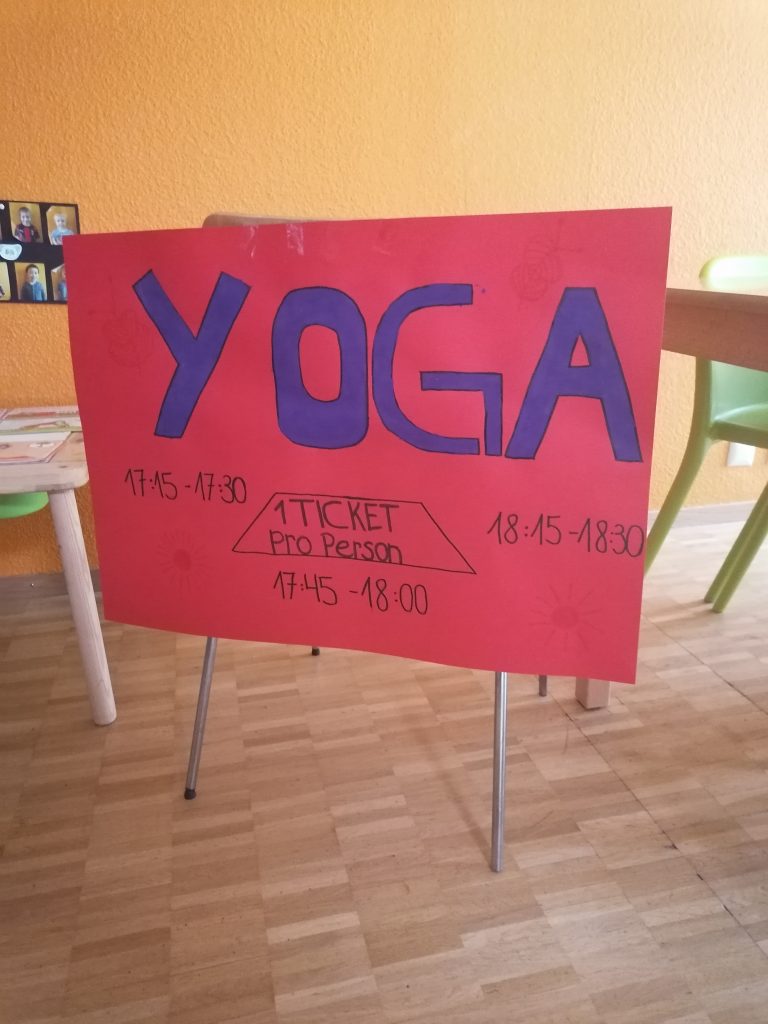 YOGA
17:15 - 17:30
1 TICKET
Pro Person
18:15 - 18:30
17:45 - 18:00